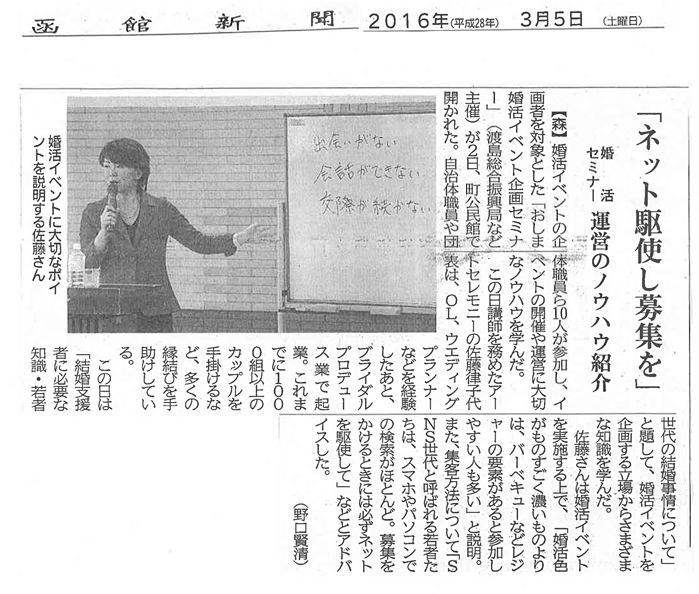 函館新聞 2016年(平成28年) 3月5日 (土曜日)
「ネット駆使し募集を」
婚活
セミナー
運営のノウハウ紹介
【森】婚活イベントの企
画者を対象とした「おしま
婚活イベント企画セミナ
ー」(渡島総合振興局など
主催)が2日、町公民館で
開かれた。自治体職員や団
体職員ら10人が参加し、イ
ベントの開催や運営に大切
なノウハウを学んだ。
この日講師を務めたアー
トセレモニーの佐藤律子代
表は、OL、ウエディング
プランナー
などを経験
したあと、
ブライダル
プロデュー
ス業で起
業。これま
でに100
0組以上の
カップルを
手掛けるな
ど、多くの
縁結びを手
助けしてい
る。
この日は
「結婚支援
者に必要な
知識・若者
世代の結婚事情について」
と題して、婚活イベントを
企画する立場からさまざま
な知識を学んだ。
佐藤さんは婚活イベント
を実施する上で、「婚活色
がものすごく濃いものより
は、バーベキューなどレジ
ャーの要素があると参加し
やすい人も多い」と説明。
また、集客方法について「S
NS世代と呼ばれる若者た
ちは、スマホやパソコンで
の検索がほとんど。募集を
かけるときには必ずネット
を駆使して」などとアドバ
イスした。
(野口賢清)
出会いがない
会話ができない
交際が続かない
婚活イベントに大切なポイ
ントを説明する佐藤さん